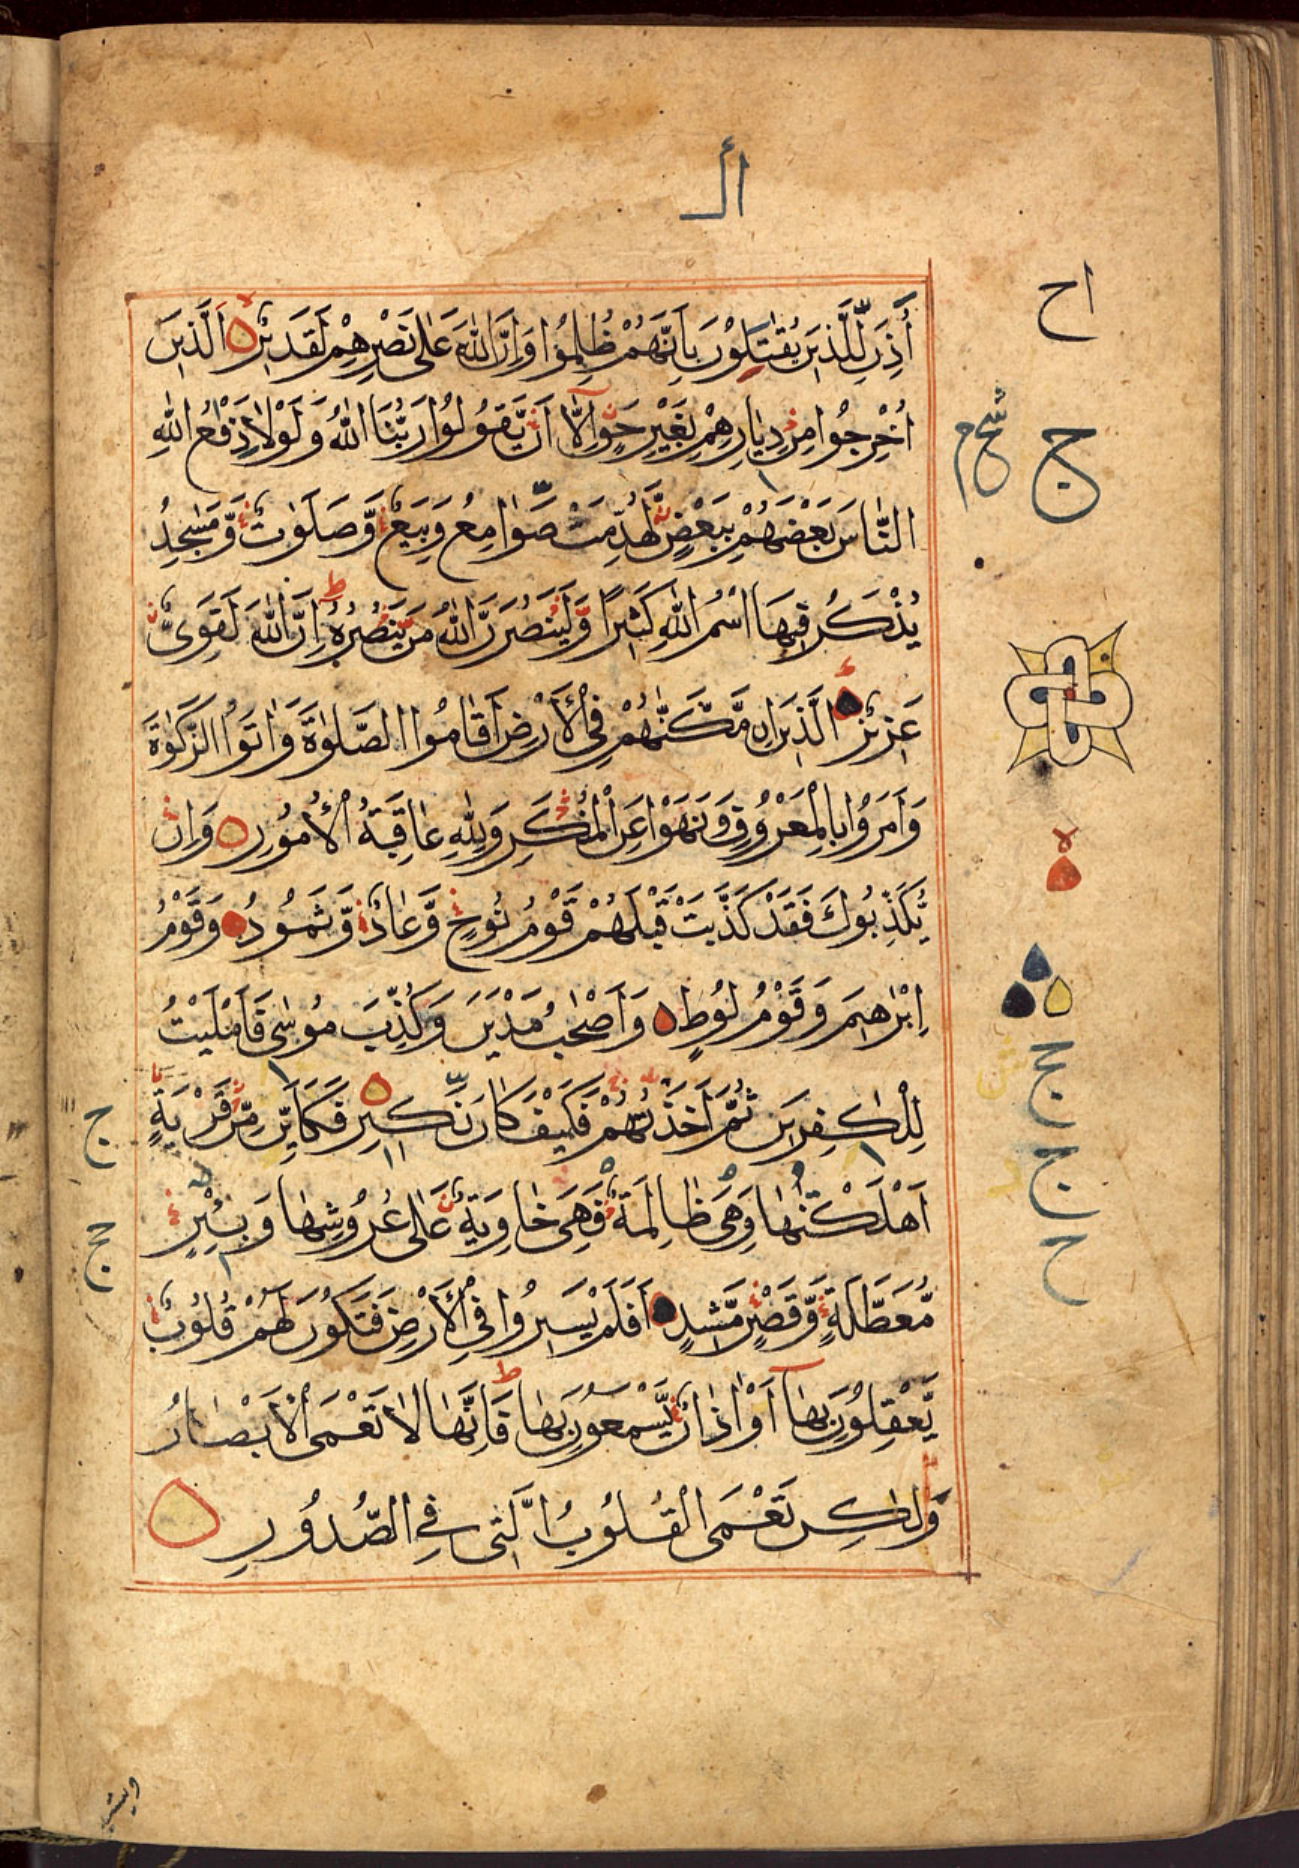 ال
أُذِنَ لِلَّذِينَ يُقٰتَلُونَ بِاَنَّهُمْ ظُلِمُوا وَاِنَّ اللهَ عَلٰى نَصْرِهِمْ لَقَدِيرٌ اَلَّذِينَ
اُخْرِجُوا مِنْ دِيَارِهِمْ بِغَيْرِ حَقٍّ اِلَّآ اَنْ يَّقُولُوا رَبُّنَا اللهُ وَلَوْلَا دَفْعُ اللهِ
النَّاسَ بَعْضَهُمْ بِبَعْضٍ لَّهُدِّمَتْ صَوَامِعُ وَبِيَعٌ وَّصَلَوٰتٌ وَّمَسٰجِدُ
يُذْكَرُ فِيهَا اسْمُ اللهِ كَثِيرًا وَّلَيَنْصُرَنَّ اللهُ مَنْ يَّنْصُرُهُ ط اِنَّ اللهَ لَقَوِىٌّ
عَزِيزٌ اَلَّذِينَ اِنْ مَّكَّنّٰهُمْ فِي الْأَرْضِ اَقَامُوا الصَّلٰوةَ وَاٰتَوُا الزَّكٰوةَ
وَاَمَرُوا بِالْمَعْرُوفِ وَنَهَوْا عَنِ الْمُنْكَرِ وَلِلّٰهِ عَاقِبَةُ الْأُمُورِ وَاِنْ
يُّكَذِّبُوكَ فَقَدْ كَذَّبَتْ قَبْلَهُمْ قَوْمُ نُوحٍ وَّعَادٌ وَّثَمُودُ وَقَوْمُ
اِبْرٰهِيمَ وَقَوْمُ لُوطٍ وَاَصْحٰبُ مَدْيَنَ وَكُذِّبَ مُوسٰى فَاَمْلَيْتُ
لِلْكٰفِرِينَ ثُمَّ اَخَذْتُهُمْ فَكَيْفَ كَانَ نَكِيرِ فَكَاَيِّنْ مِّنْ قَرْيَةٍ
اَهْلَكْنٰهَا وَهِىَ ظَالِمَةٌ فَهِىَ خَاوِيَةٌ عَلٰى عُرُوشِهَا وَبِئْرٍ
مُّعَطَّلَةٍ وَّقَصْرٍ مَّشِيدٍ اَفَلَمْ يَسِيرُوا فِي الْأَرْضِ فَتَكُونَ لَهُمْ قُلُوبٌ
يَّعْقِلُونَ بِهَآ اَوْ اٰذَانٌ يَّسْمَعُونَ بِهَا ط فَاِنَّهَا لَا تَعْمَى الْاَبْصَارُ
وَلٰكِنْ تَعْمَى الْقُلُوبُ الَّتِى فِي الصُّدُورِ
اح
ج
ج
ج